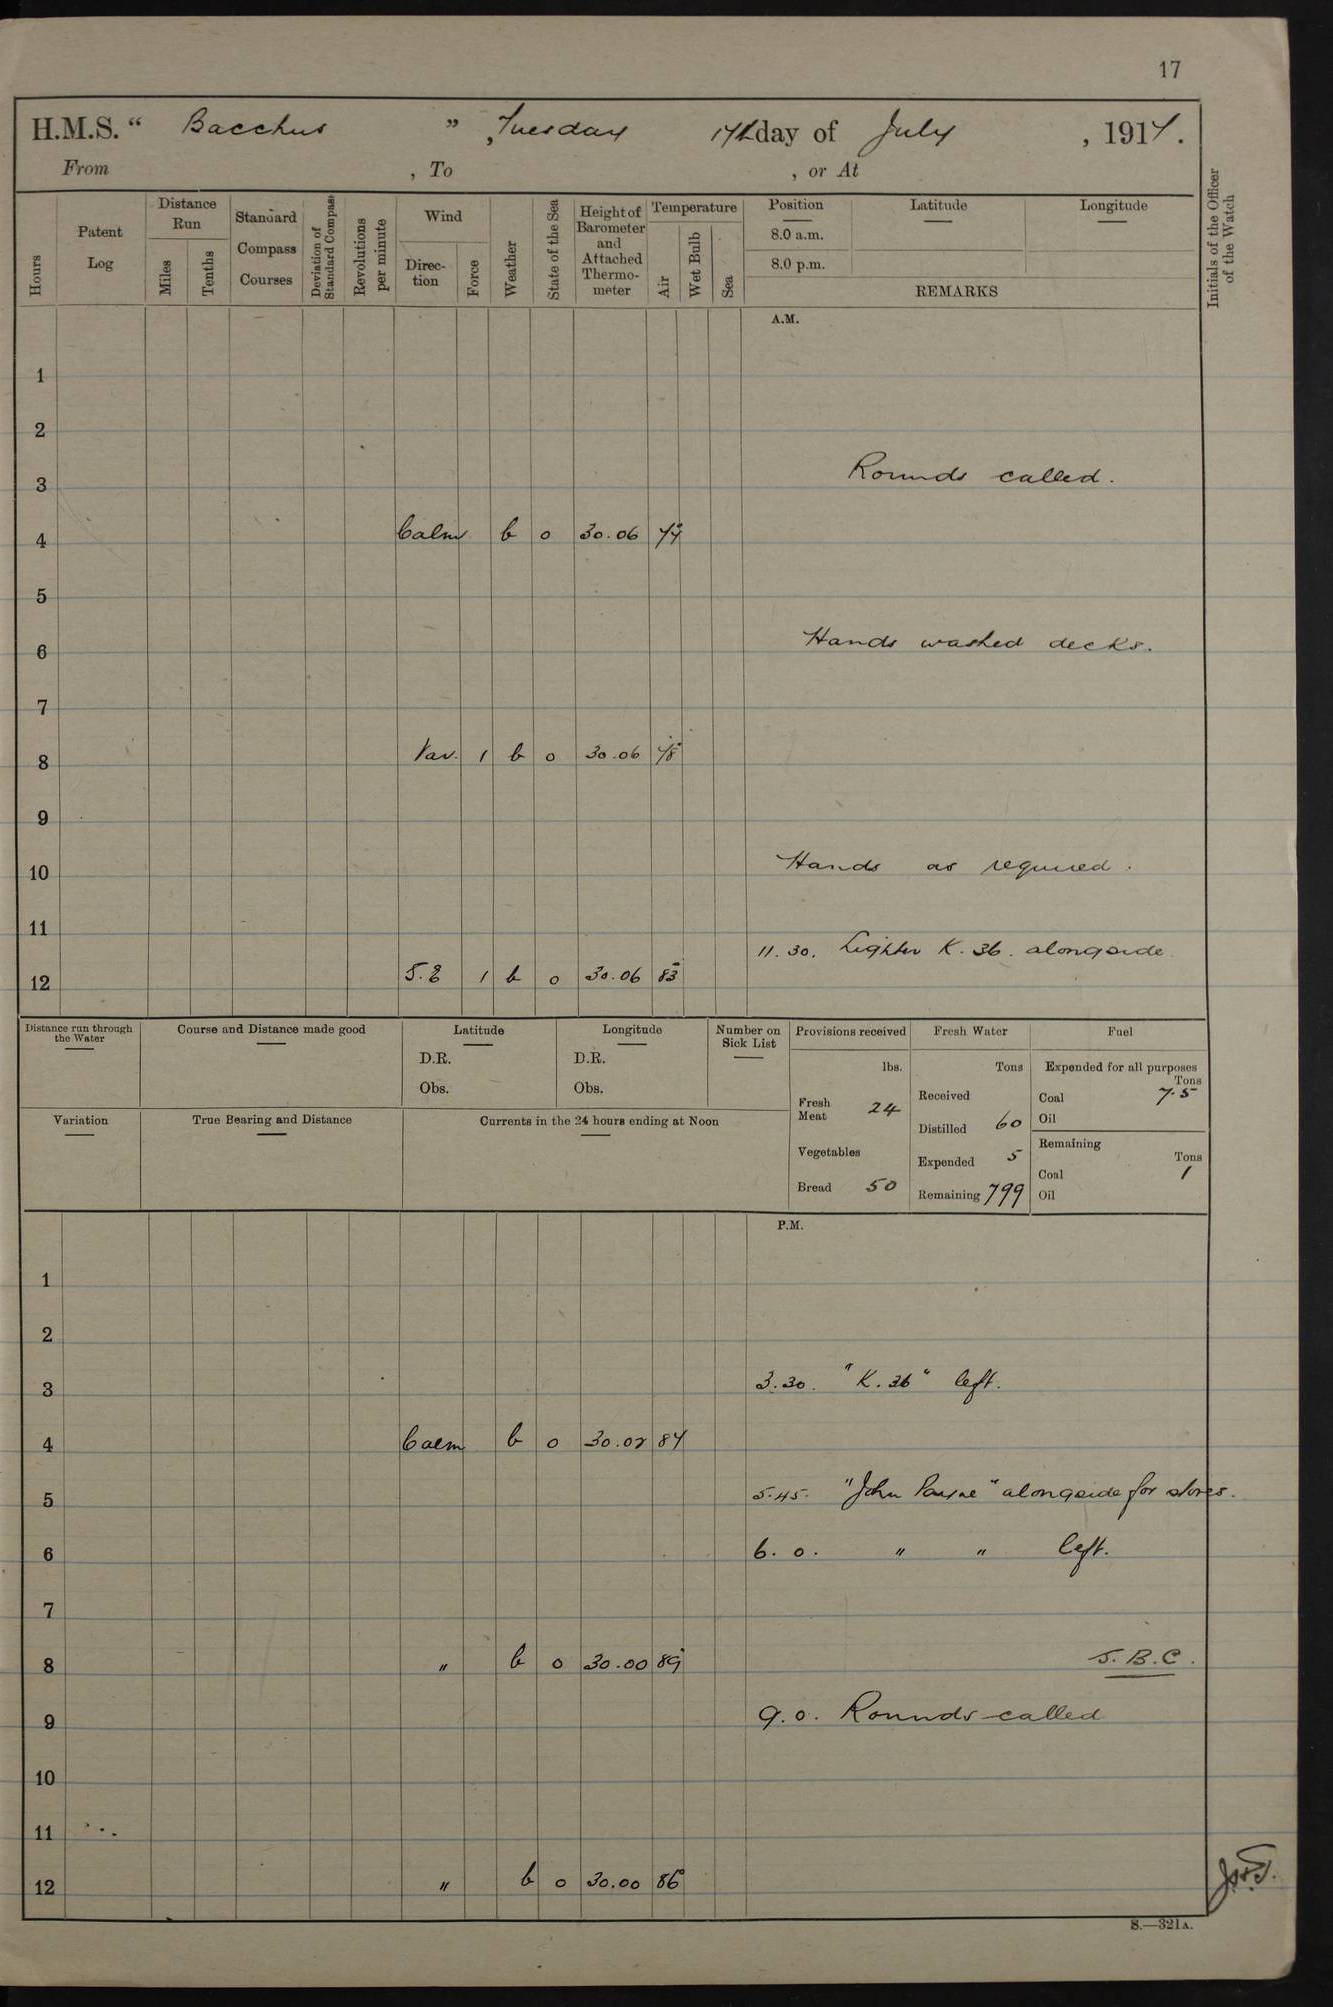 17
H.M.S. “ Bacchus ” , Tuesday 17th day of July , 1917.
From , To , or At
Hours
Patent Log
Distance Run
Miles
Tenths
Standard Compass Courses
Deviation of Standard Compass
Revolutions per minute
Wind
Direction
Force
Weather
State of the Sea
Height of Barometer and Attached Thermometer
Temperature
Air
Wet Bulb
Sea
Position
8.0 a.m.
8.0 p.m.
Latitude
Longitude
REMARKS
Initials of the Officer of the Watch
A.M.
1
2
3 Rounds called.
4 Calm b o 30.06 77
5
6 Hands washed decks.
7
8 Var. 1 b o 30.06 78
9
10 Hands as required.
11
11.30. Lighter K. 36. alongside
12 S.E 1 b o 30.06 83
Distance run through the Water
Course and Distance made good
Latitude
D.R.
Obs.
Longitude
D.R.
Obs.
Number on Sick List
Variation
True Bearing and Distance
Currents in the 24 hours ending at Noon
Provisions received
lbs.
Fresh Meat 24
Vegetables
Bread 50
Fresh Water
Tons
Received
Distilled 60
Expended 5
Remaining 799
Fuel
Expended for all purposes
Tons
Coal 7.5
Oil
Remaining
Tons
Coal 1
Oil
P.M.
1
2
3 3.30. "K.36" left.
4 Calm b o 30.02 84
5 5.45. "John Payne" alongside for stores.
6 6.0. " " left.
7
8 " b o 30.00 89 S.B.C.
9 9.0. Rounds called
10
11
12 " b o 30.00 86
S.—321A.